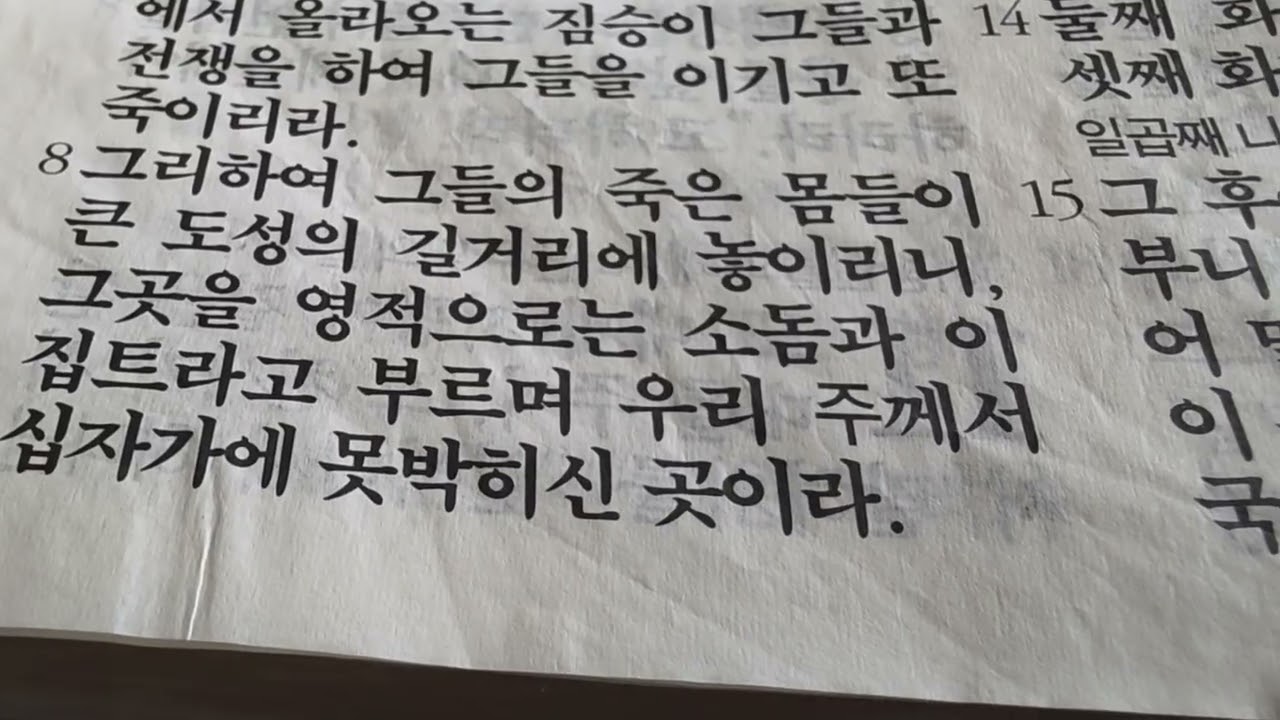 에서 올라오는 짐승이 그들과
전쟁을 하여 그들을 이기고 또
죽이리라.
8 그리하여 그들의 죽은 몸들이
큰 도성의 길거리에 놓이리니,
그곳을 영적으로는 소돔과 이
집트라고 부르며 우리 주께서
십자가에 못박히신 곳이라.
14 둘째 화
셋째 화
일곱째 나
15 그 후
부니
어
이
국